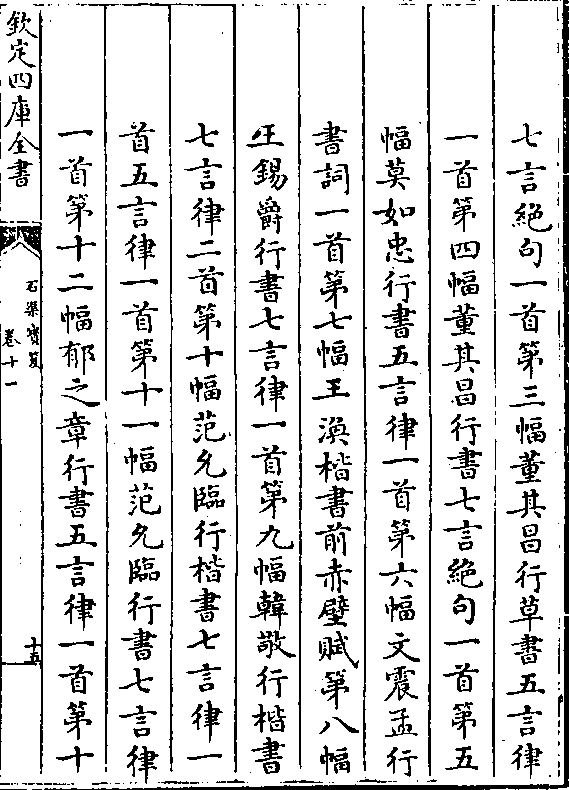 七言絶句一首第三幅董其昌行草書五言律
一首第四幅董其昌行書七言絶句一首第五
幅莫如忠行書五言律一首第六幅文震孟行
書詞一首第七幅王渙楷書前赤壁賦第八幅
王錫爵行書七言律一首第九幅韓敬行楷書
七言律二首第十幅范允臨行楷書七言律一
首五言律一首第十一幅范允臨行書七言律
一首第十二幅郁之章行書五言律一首第十
欽定四庫全書
石渠寳笈
卷十一
十五